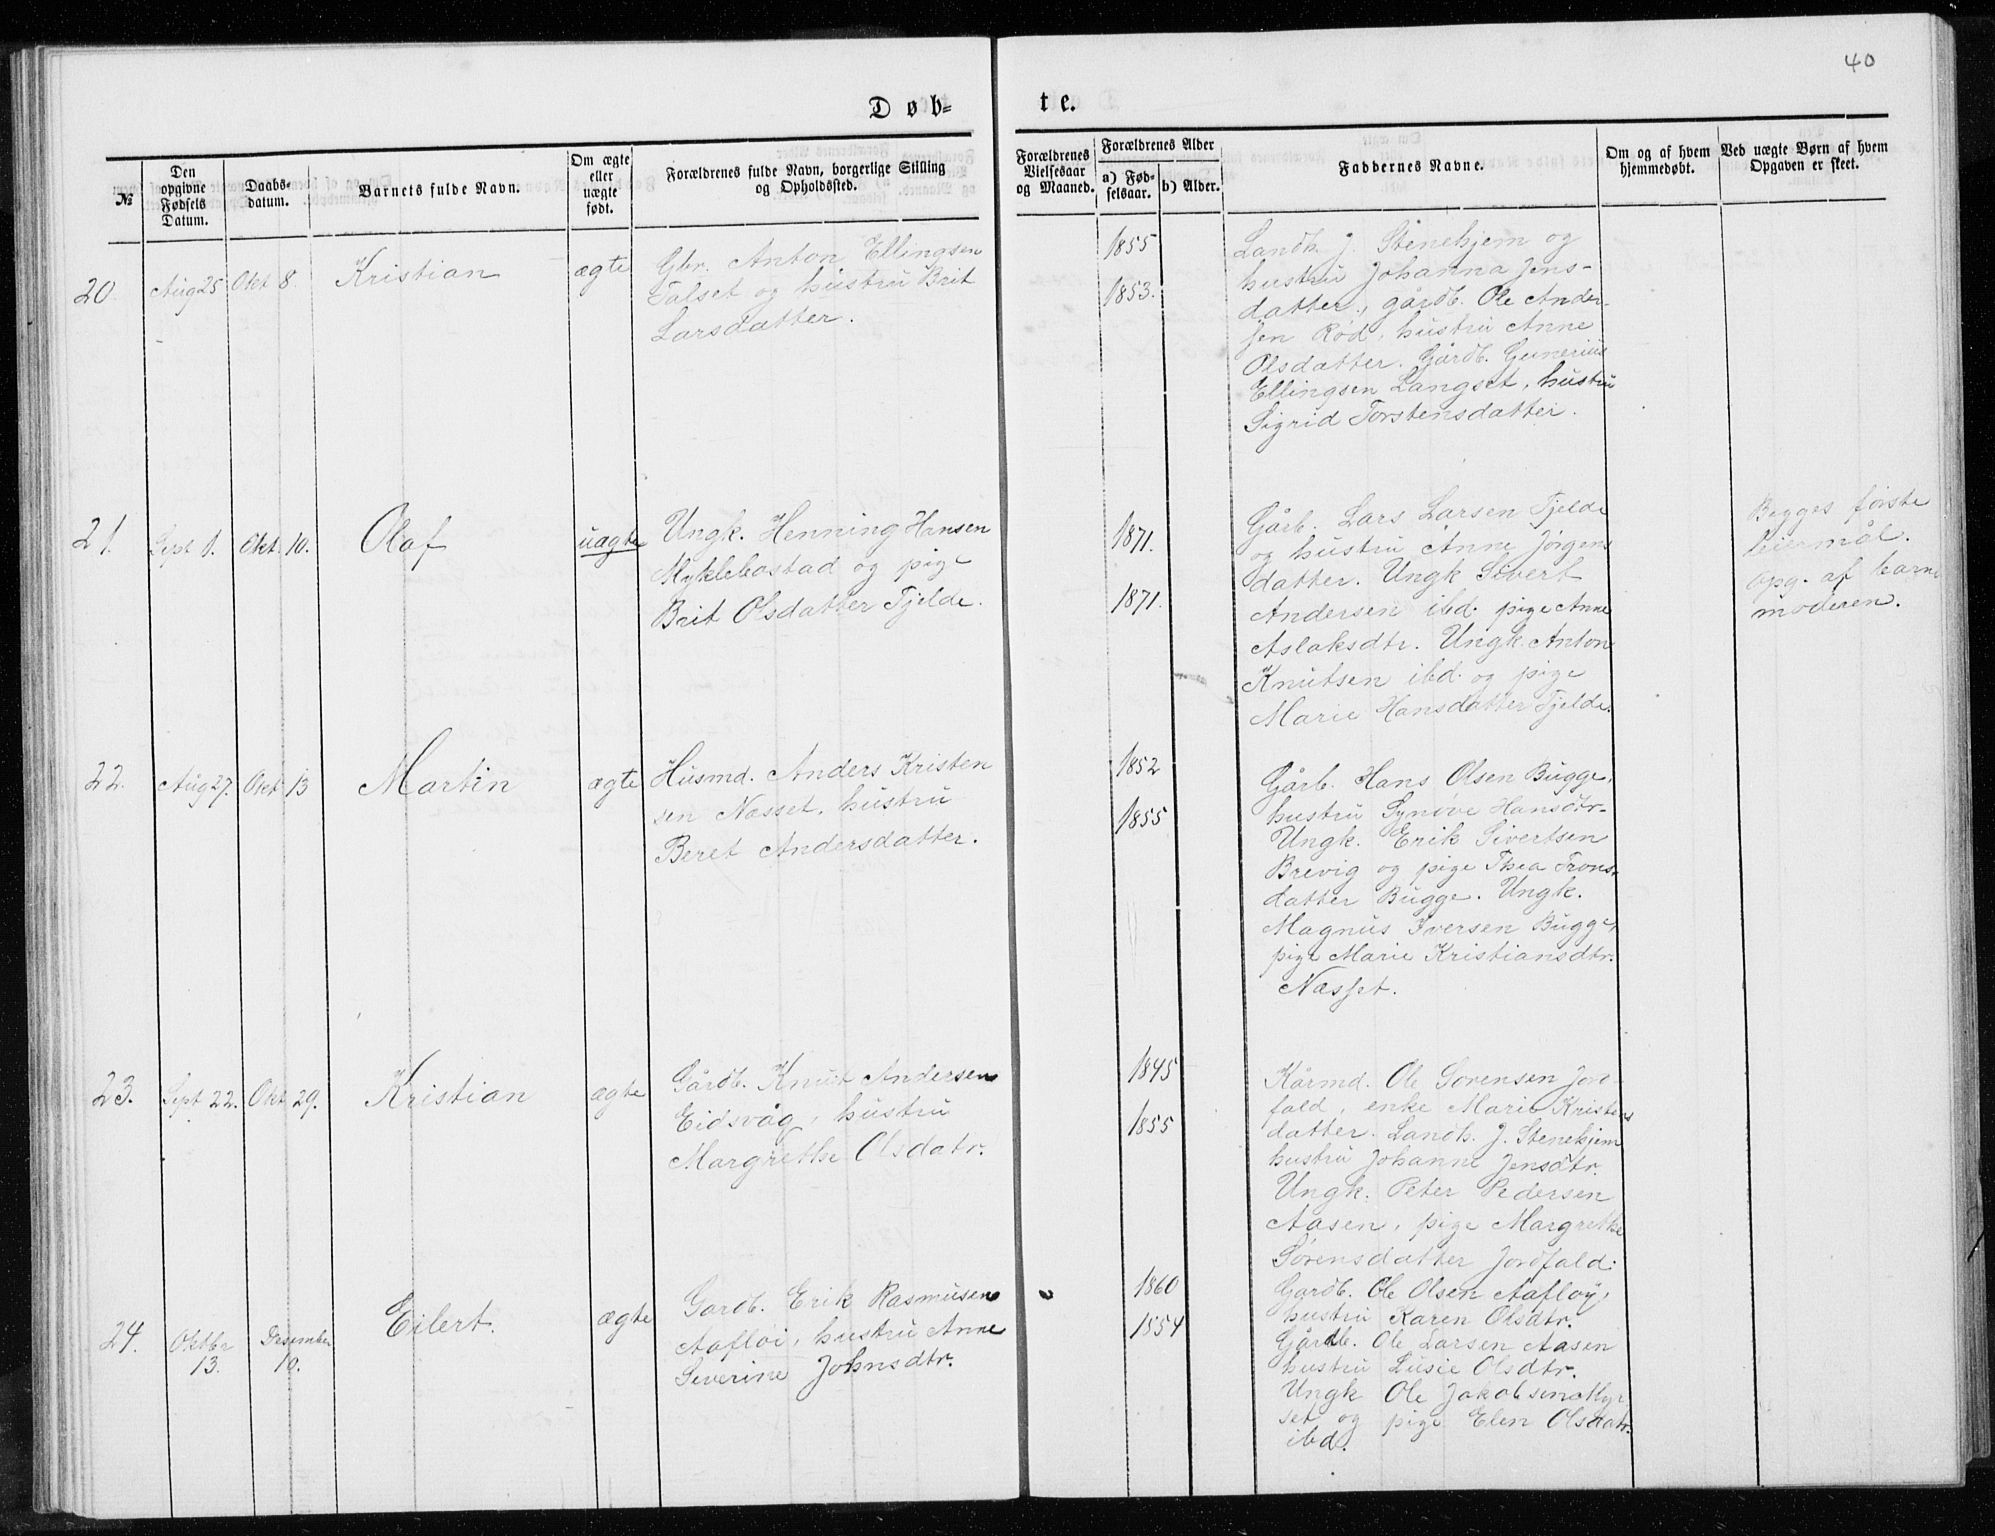 40
Døb-
te.
№
Den opgivne Fødsels Datum.
Daabs-datum.
Barnets fulde Navn.
Om ægte eller uægte født.
Forældrenes fulde Navn, borgerlige Stilling og Opholdssted.
Forældrenes Vielsesaar og Maaned.
Forældrenes Alder
a) Fødselsaar.
b) Alder.
Faddernes Navne.
Om og af hvem hjemmedøbt.
Ved uægte Børn af hvem Opgaven er skeet.
20.
Aug 25
Okt 8.
Kristian
ægte
Gbr. Anton Ellingsen
Talset og hustru Brit
Larsdatter.
1855
1853.
Landh. J. Stenehjem og
hustru Johanna Jens-
datter, gårdb. Ole Ander-
sen Rød, hustru Anne
Olsdatter. Gårdb. Gunerius
Ellingsen Langset, hustru
Sigrid Torstensdatter.
21.
Sept 1.
Okt. 10.
Olaf
uægte
Ungk. Henning Hansen
Myklebostad og pige
Brit Olsdatter Tjelde.
1871.
1871.
Gårb. Lars Larsen Tjelde
og hustru Anne Jørgens
datter. Ungk Sivert
Andersen ibd. pige Anne
Aslaksdtr. Ungk. Anton
Knutsen ibd. og pige
Marie Hansdatter Tjelde.
Begges første
leiermål.
Opg. af barne
moderen.
22.
Aug 27.
Okt 13
Martin
ægte
Husmd. Anders Kristen
sen Næsset, hustru
Beret Andersdatter.
1852
1855
Gårb. Hans Olsen Bugge,
hustru Synøve Hansdtr.
Ungk. Erik Sivertsen
Brevig og pige Thea Trons-
datter Bugge. Ungk.
Magnus Iversen Bugge,
pige Marie Kristiansdtr.
Næsset.
23.
Sept 22.
Okt 29.
Kristian
ægte
Gårdb. Knut Andersen
Eidsvåg, hustru
Margrethe Olsdatr.
1845
1855
Kårmd. Ole Sorensen Jord
fald, enke Marie Kristens
datter. Landh. J. Stenehjem
hustru Johanne Jensdtr.
Ungk. Peter Pedersen
Aasen, pige Margrethe
Sørensdatter Jordfald.
24.
Oktbr
13.
Desember
10.
Eilert.
ægte
Gardb. Erik Rasmusen
Aafløi, hustru Anne
Severine Johnsdtr.
1860
1854
Gardb. Ole Olsen Aafløy,
hustru Karen Olsdtr.
Gårdb. Ole Larsen Aasen
hustru Lusie Olsdtr.
Ungk Ole Jakobsen Myr
set og pige Elen Olsdatr.
ibd.